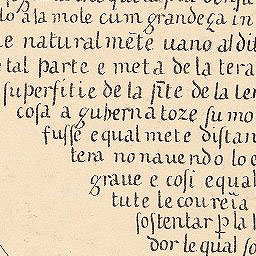 to à la mole cum grandeça in
e natural mẽte uano al dit
tal parte e meta de la tera
superfitie de la pñte de la ter
cosa a gubernatoze su mo
fusse equal mete distan
tera no nauendo lo e
graue e cosi equal
tute le coureĩa
sostentar ꝑ la l
dor le qual so